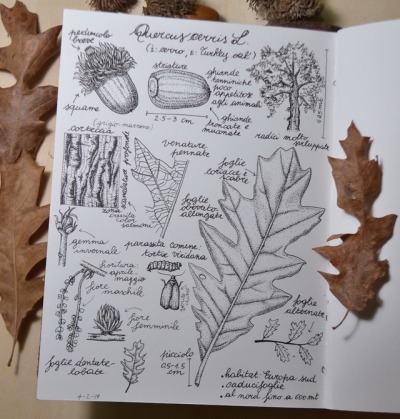 Quercus cerris L.
(I: cerro, E: Turkey oak)
peduncolo
breve
squame
striature
2.5-3 cm
ghiande
tanniniche
poco
appetitose
agli animali
ghiande
troncate e
mucronate
radici molto
sviluppate
(grigio-marrone)
corteccia
zona
crescita
color
salmone
venature
pennate
foglie
coriacee e
scabre
foglie
obovato-
allungate
gemma
invernale
parassita comune:
tortrix viridana
fioritura
aprile-
maggio
fiore
maschile
fiore
femminile
foglie
alternate
foglie dentate-
lobate
picciolo
0.5-1.5
cm
habitat: Europa sud
caducifoglie
al nord fino a 800 mt